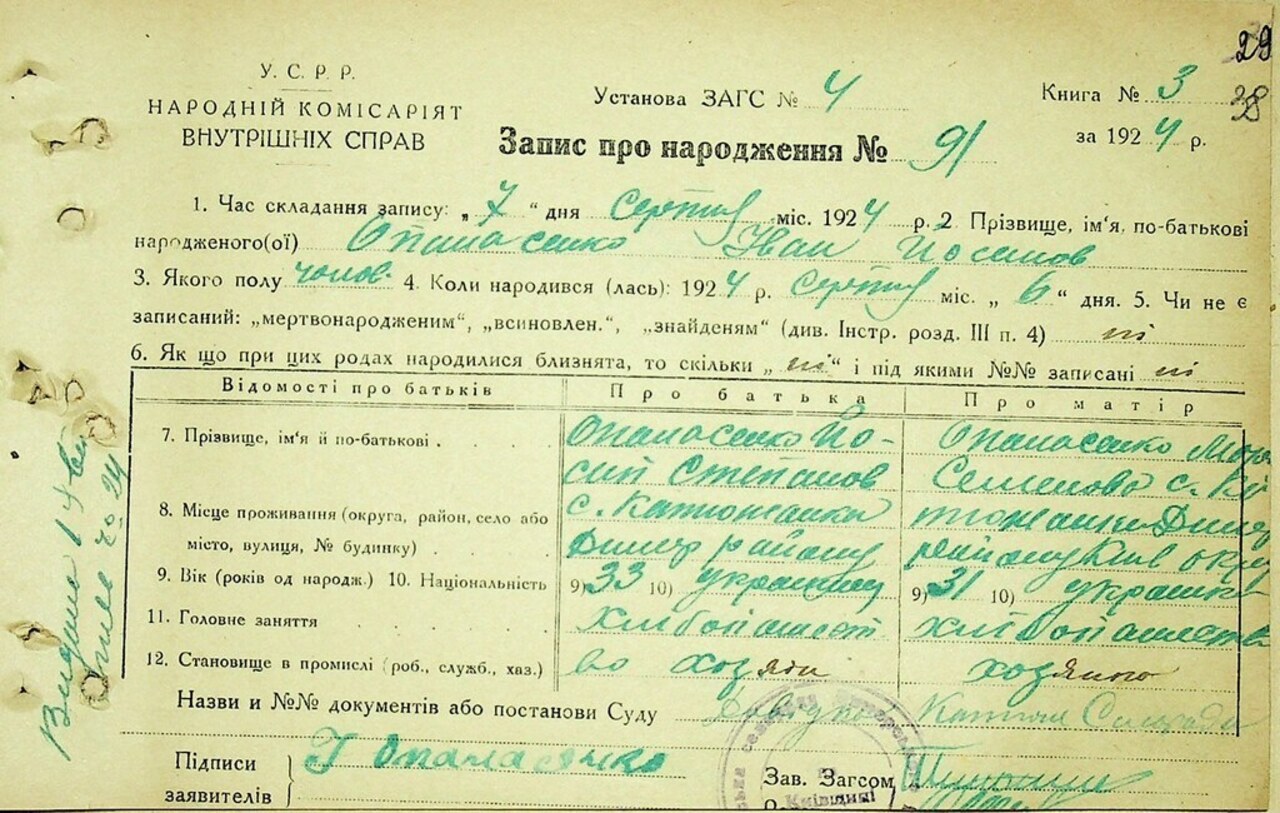 29
У. С. Р. Р.
НАРОДНІЙ КОМІСАРІЯТ
ВНУТРІШНІХ СПРАВ
Установа ЗАГС № 4
Книга № 3
28
за 1924 р.
Запис про народження № 91
1. Час складання запису: „ 7 “ дня Серпня міс. 1924 р. 2 Прізвище, ім'я, по-батькові
народженого(ої) Опанасенко Іван Йосипов
3. Якого полу чолов. 4. Коли народився (лась): 1924 р. Серпня міс. „ 6 “ дня. 5. Чи не є
записаний: „мертвонародженим“, „всиновлен.“, „знайденям“ (див. Інстр. розд. III п. 4) ні
6. Як що при цих родах народилися близнята, то скільки „ ні “ і під якими №№ записані ні
Відомості про батьків Про батька Про матір
7. Прізвище, ім'я й по-батькові . Опанасенко Йо- Опанасенко
сип Степанов Семенова с. Ка
8. Місце проживання (округа, район, село або с. Катюжанка тюжанки Димер
місто, вулиця, № будинку) . Димер району району Київ окр
9. Вік (років од народж.) 10. Національність 9) 33 10) українец 9) 31 10) українка
11. Головне заняття хлібопашест хлібопашество
12. Становище в промислі (роб., служб., хаз.) во хозяин хозяйка
Назви и №№ документів або постанови Суду Катюж Сільрада
Підписи
заявителів
Опанасенко
Зав. Загсом
Київщині
Видана